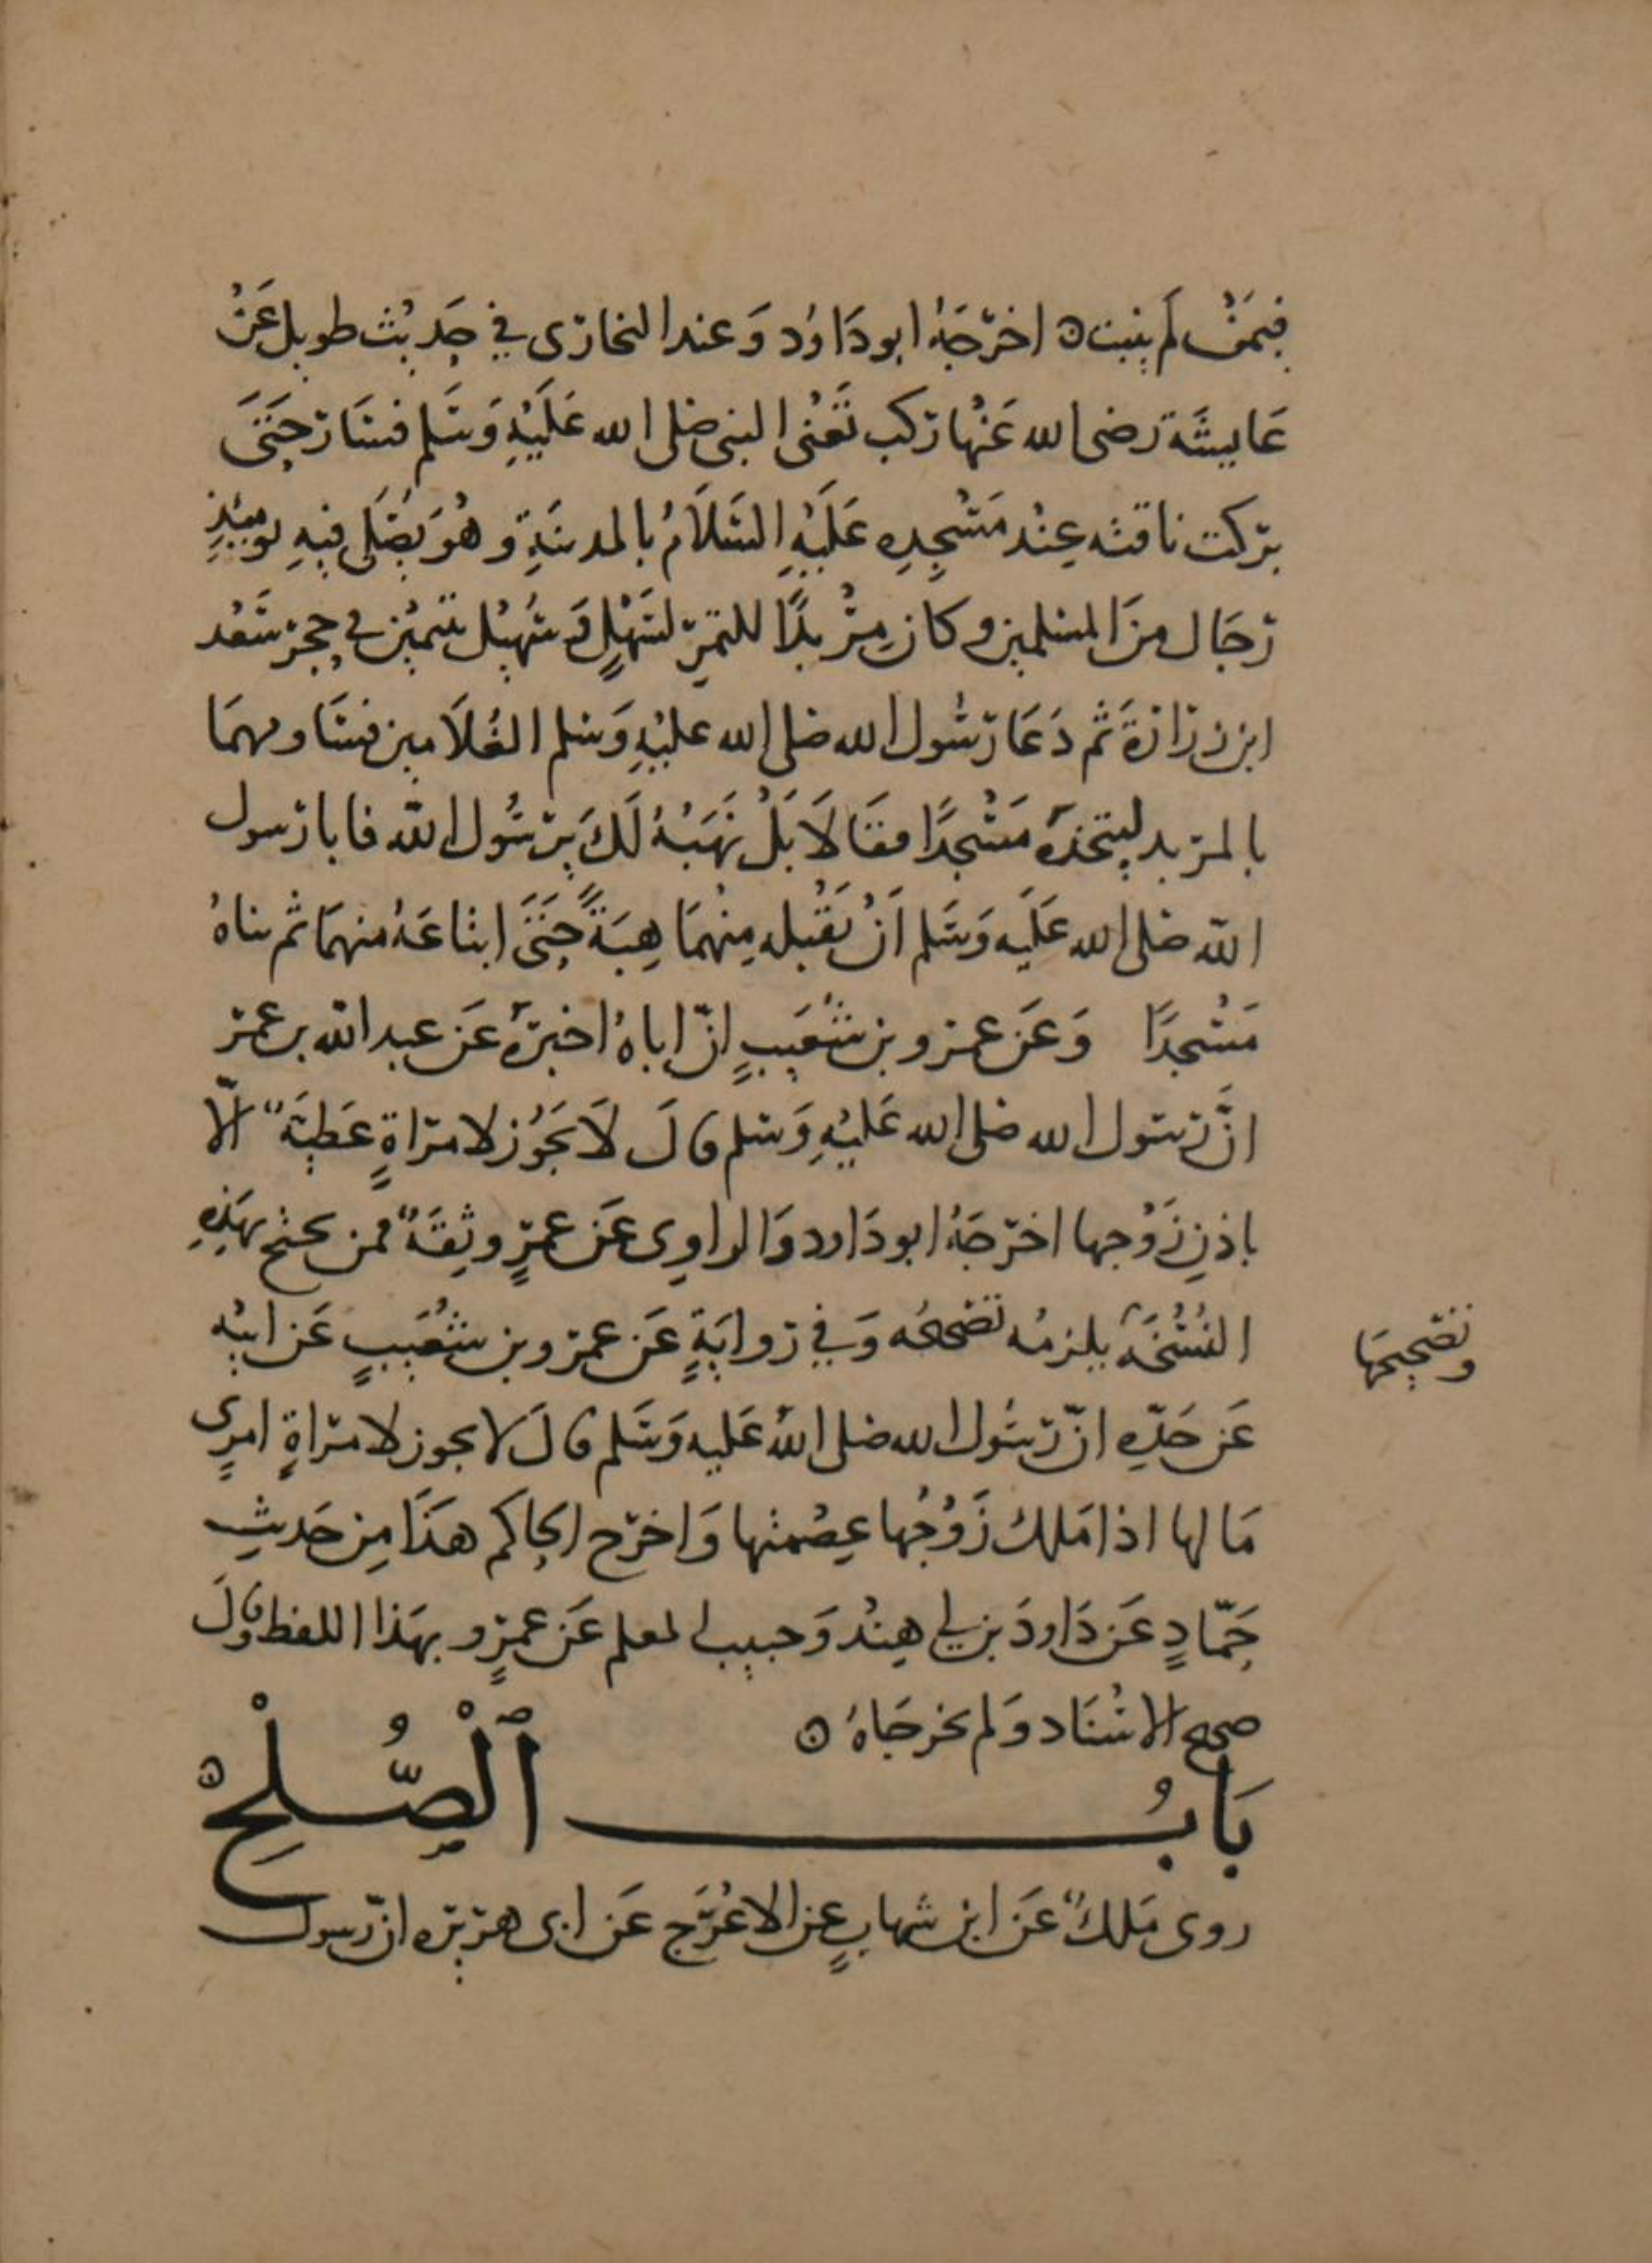 فيمَنْ لم ينبت ه اخرّجَهُ ابو دَاوُد وَعند البخارى في حَديث طويل عَنْ
عَايشَة رضى الله عَنْها ركب تَعْنى النبى صلى الله عَلَيْهِ وَسَلم فسَار حَتَى
بركت ناقته عِنْد مَسْجِدِهِ عَلَيْهِ السَلَامُ بالمدينَةِ وهُوَ يُصَلى فِيهِ يوميئذٍ
رجَال مِنَ المسلمين وكان مِرْبدًا للتمرِ لسَهْلٍ وَسُهَيْل يتيمَيْن في حجر سَعْد
ابن زرَارَةَ ثم دَعَا رسُول الله صلى الله عليْهِ وَسلم الغُلَامين فسَاومهمَا
بالمربد ليتخذهُ مَسْجدًا فقَالَا بَلْ نَهَبُهُ لَكَ يرسُول الله فابا رسول
الله صلى الله عَلَيه وَسَلم اَنْ يَقْبله مِنْهمَا هِبَةً حَتَى ابتاعَهُ منهمَا ثم بناهُ
مَسْجدًا وَعَن عمرو بن شُعَيبٍ انّ اباهُ اخبرهُ عَن عبد الله بن عمر
انَّ رسول الله صلى الله عَليْهِ وَسلم قالَ لَا يَجُوْز لامرَاةٍ عَطِيَةٌ الّا
باذنِ زَوْجها اخرّجَهُ ابو دَاود وَالراوِى عَن عمرٍو ثِقَةٌ فمن يحتج بهَذِهِ
النُسْخَةِ يلزمُه تصحيحُه وَفي رواَيَةٍ عَن عمرو بن شُعَيبٍ عَن ابيْهِ
وتصْحِيحهَا
عَن جَدّهِ انّ رسُول الله صلى الله عَليه وَسَلم قالَ لا يجوز لامراةٍ امرٍى
مَا لها اذا مَلك زَوْجُها عِصْمتها وَاخرّج الحاكم هذَا مِن حَديثِ
حَمّادٍ عَن دَاودَ بن ابي هِنْد وَحبيب المعلم عَن عمرٍو بهَذا اللفظ وقالَ
صحيح الاسْنَاد وَلم يخرجَاهُ ه
بَابُ ٱلْصُّلْحِ ه
روى مَلكٌ عَن ابن شهابٍ عن الاعْرَج عَن ابى هريره انّ رسول